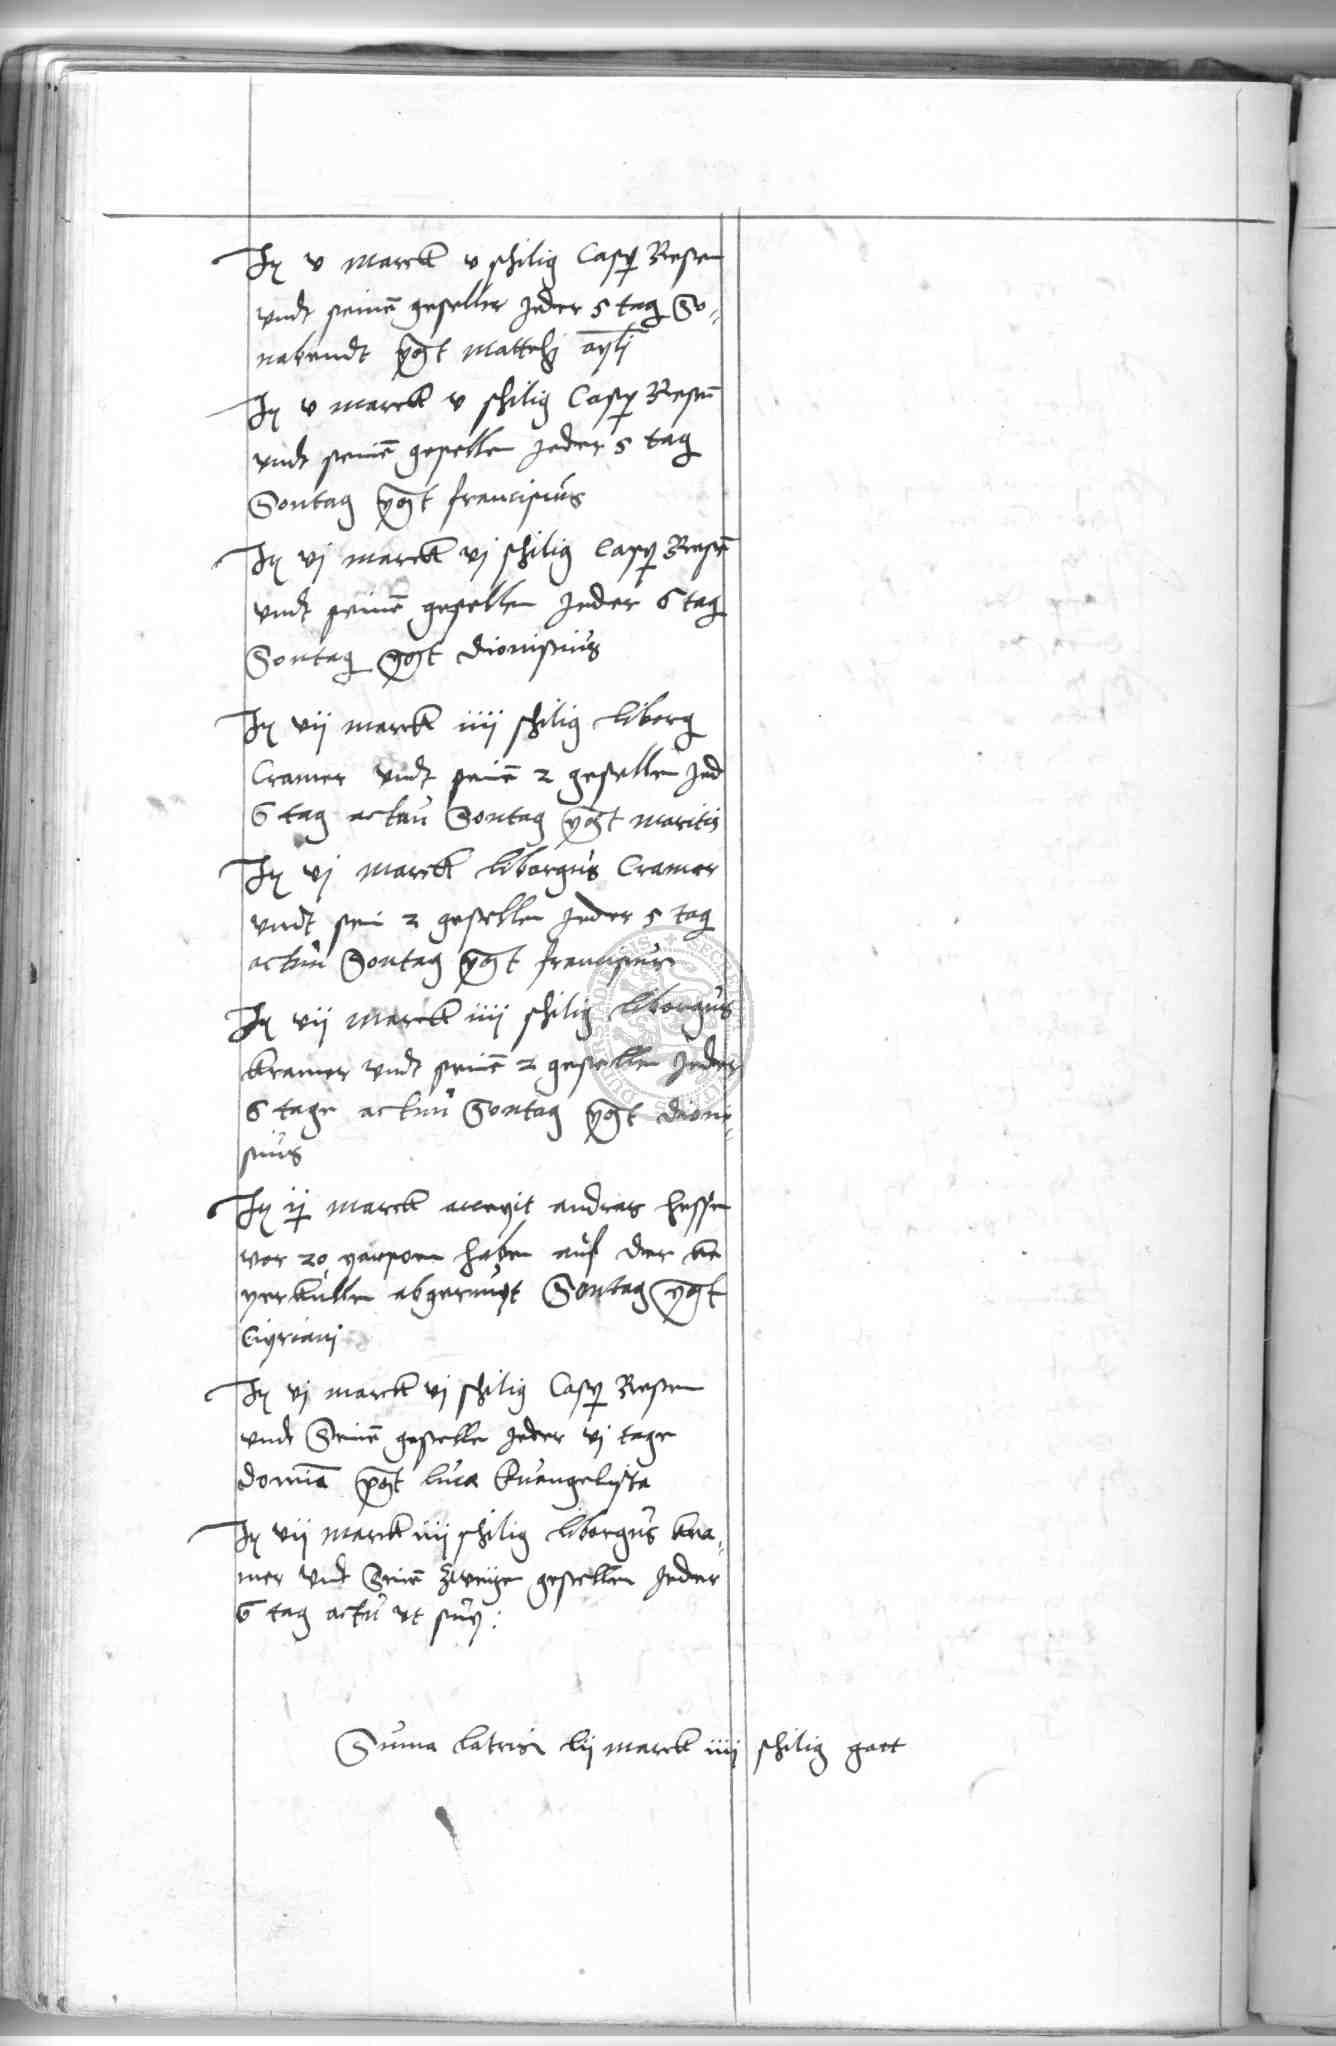 It v marck v schilig Casp Resen
vndt seinē gesellen Jeder 5 tag So-
nabendt post Matthej apli
It v marck v schilig Casp Resen
vndt seinē gesellen Jeder 5 tag
Sontag post franciscus
It vj marck vj schilig Casp Resen
vndt seinē gesellen Jeder 6 tag
Sontag post dionisius
It vij marck iiij schilig liborg
Cramer vndt seinē 2 gesellen Jed
6 tag actum Sontag post Maritii
It vj marck liborgus Cramer
vndt sein 2 gesellen Jeder 5 tag
actum Sontag post franciscus
It vij marck iiij schilig liborgus
kramer vndt seinē 2 gesellen Jeder
6 tage actum Sontag post dioni-
sius
It ij marck andreas hessen
vor 20 haben auf der
Sontag post
It vj marck vj schilig Casp Resen
vndt Seinē geselle Jeder vj tage
domīca post luca Evangelista
It vij marck iiij schilig liborgus kra-
mer vndt Seinē zweyen gesellen Jeder
6 tag actū vt sup:
Suma lateris lij marck iiij schilig gott